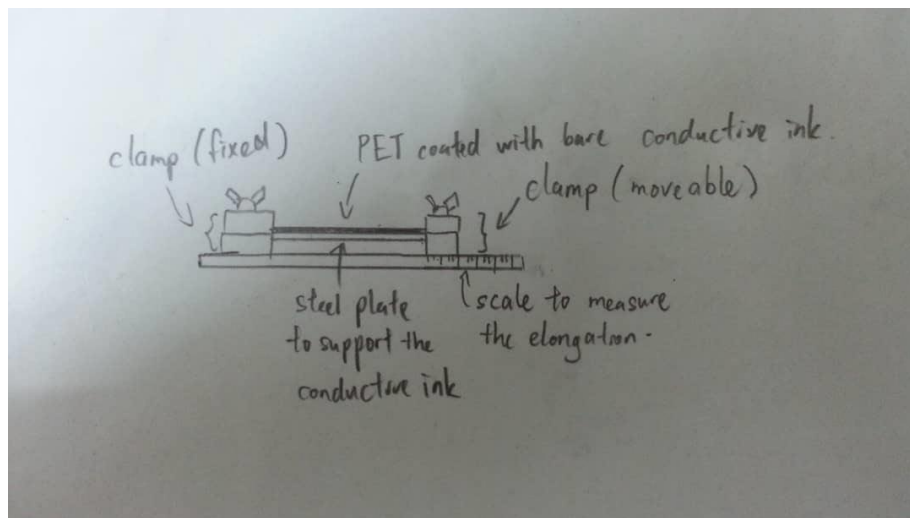 clamp (fixed)
PET coated with bare conductive ink.
clamp (moveable)
steel plate
to support the
conductive ink
scale to measure
the elongation.